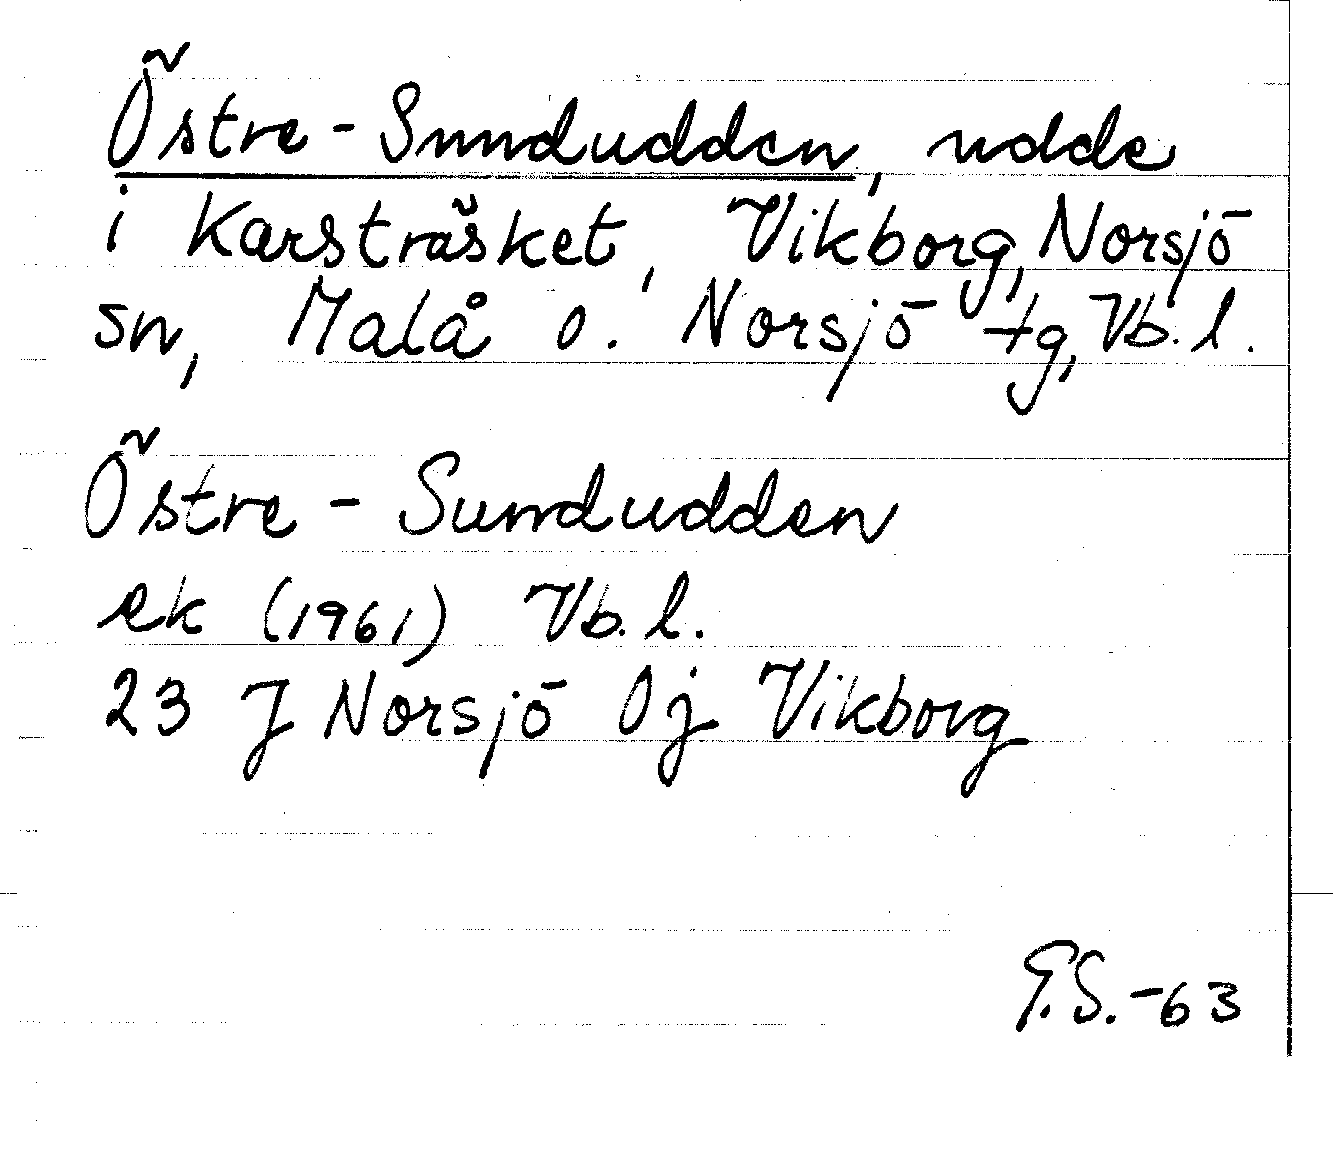 Östre-Sundudden, udde
i Karsträsket, Vikborg, Norsjö
sn, Malå o. Norsjö tg, Vb. l.
Östre-Sundudden
ek (1961) Vb. l.
23 J Norsjö 0j Vikborg
G.S.-63